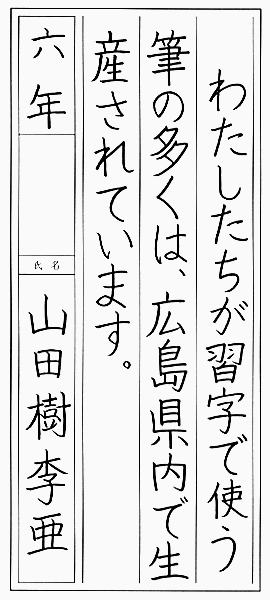 わたしたちが習字で使う
筆の多くは、広島県内で生
産されています。
六年
氏名
山田樹李亜